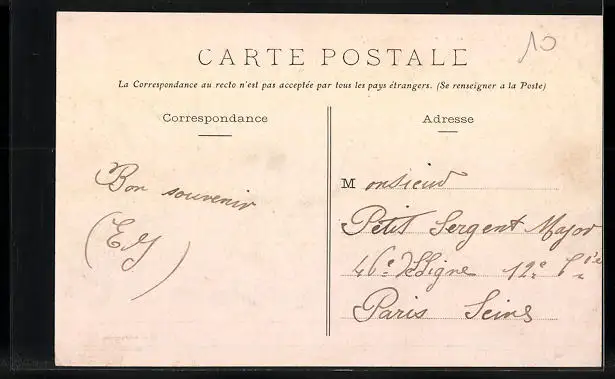 10
CARTE POSTALE
La Correspondance au recto n'est pas acceptée par tous les pays étrangers. (Se renseigner a la Poste)
Correspondance
Bon souvenir
(EJ)
Adresse
Monsieur
Petit Sergent Major
46e de Ligne 12e Cie
Paris Seine